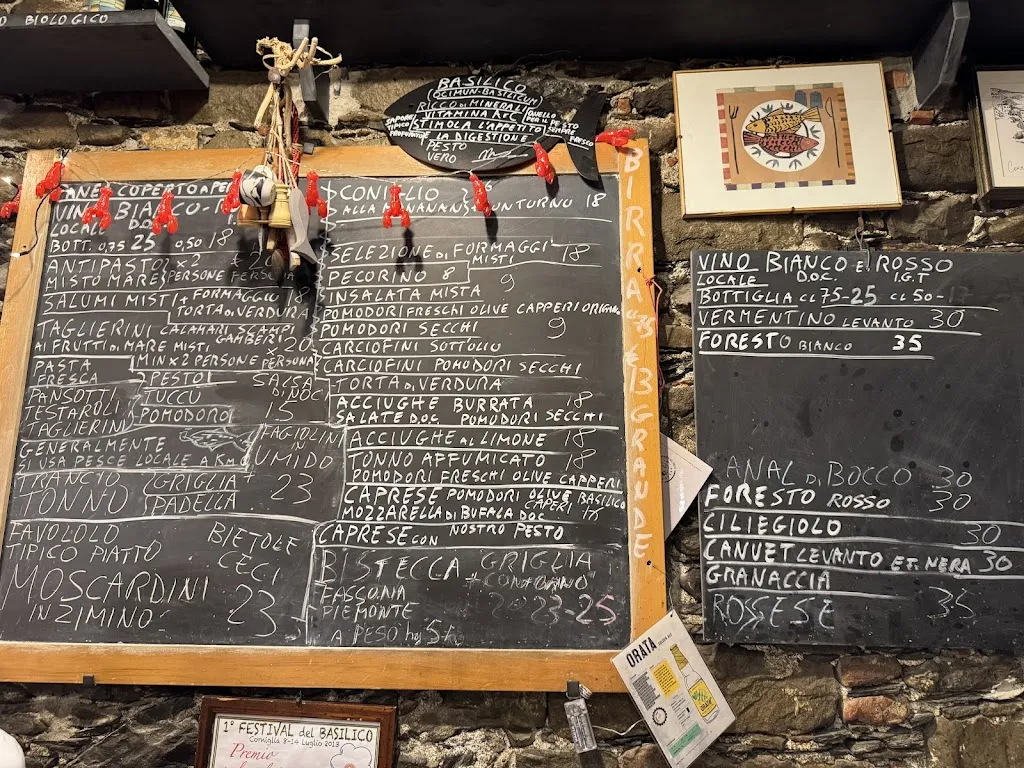 BIOLOGICO
BASILICO
(OCIMUN-BASILICUM)
RICCO DI MINERALI
VITAMINA A+C
STIMOLA L'APPETITO
E LA DIGESTIONE
PESTO
VERO
SAPORE
TIPICO
PROFUMATO
QUELLO
PER IL PESTO
SEMPRE
FRESCO
PANE COPERTO A PE
VINO BIANCO-
LOCALE D.O.C
BOTT. 0,75 25 0,50 18
ANTIPASTO X 2 € 20
MISTO MARE PERSONE PERSONA
SALUMI MISTI + FORMAGGIO 18
TORTA DI VERDURA
TAGLIERINI CALAMARI SCAMPI
AI FRUTTI DI MARE MISTI GAMBERI 20
MIN X 2 PERSONE PERSONA
PASTA
FRESCA
PANSOTTI
TESTAROLI
TAGLIERINI
PESTO
TUCCU
POMODORO
SALSA
DI NOCI
15
GENERALMENTE
SI USA PESCE LOCALE A KM
FAGIOLINI
IN
UMIDO
TRANCIO GRIGLIA
TONNO SPADELLA 23
FAVOLOLO
TIPICO PIATTO
BIETOLE
CECI
MOSCARDINI
IN ZIMINO 23
CONIGLIO
DALLA NONANAN TUN TURNO 18
SELEZIONE DI FORMAGGI 18
MISTI
PECORINO 8
INSALATA MISTA 9
POMODORI FRESCHI OLIVE CAPPERI ORIGANO
POMODORI SECCHI 9
CARCIOFINI SOTTOLIO
CARCIOFINI POMODORI SECCHI
TORTA DI VERDURA
ACCIUGHE BURRATA 18
SALATE DOC POMODORI SECCHI
ACCIUGHE AL LIMONE 18
TONNO AFFUMICATO 18
POMODORI FRESCHI OLIVE CAPPERI
CAPRESE POMODORI OLIVE BASILICO
CAPERI
MOZZARELLA DI BUFALA DOC
CAPRESE CON NOSTRO PESTO
BISTECCA GRIGLIA
+CONTORNO
FASSONA
PIEMONTE 20 23-25
A PESO hg 5
BIRRA "75 € 13 GRANDE
VINO BIANCO E ROSSO
LOCALE D.O.C I.G.T
BOTTIGLIA CL 75-25 CL 50-1
VERMENTINO LEVANTO 30
FORESTO BIANCO 35
ANAL DI BOCCO 30
FORESTO ROSSO 30
CILIEGIOLO 30
CANUET LEVANTO ET. NERA 30
GRANACCIA
ROSSESE 35
ORATA
1° FESTIVAL del BASILICO
Corniglia 8-14 Luglio 2013
Premio